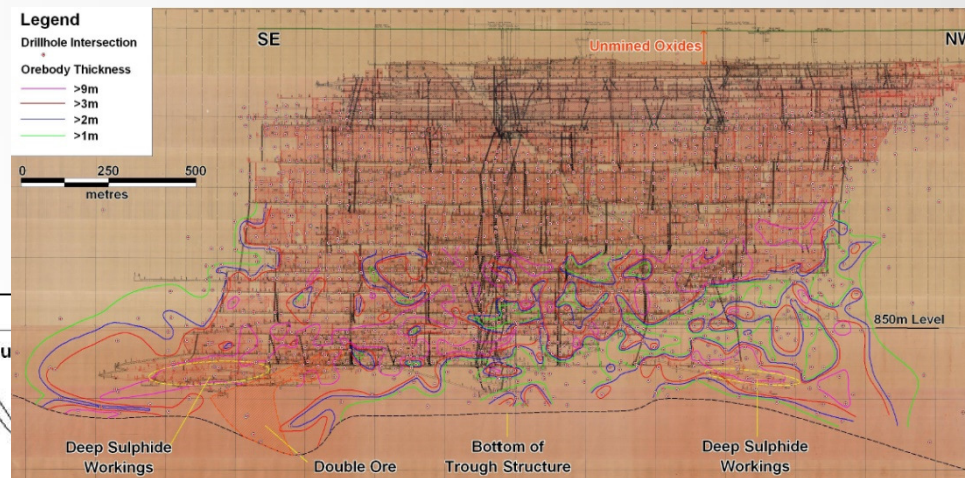 Legend
Drillhole Intersection
Orebody Thickness
>9m
>3m
>2m
>1m
0 250 500
metres
SE
Unmined Oxides
NW
850m Level
Deep Sulphide
Workings
Double Ore
Bottom of
Trough Structure
Deep Sulphide
Workings